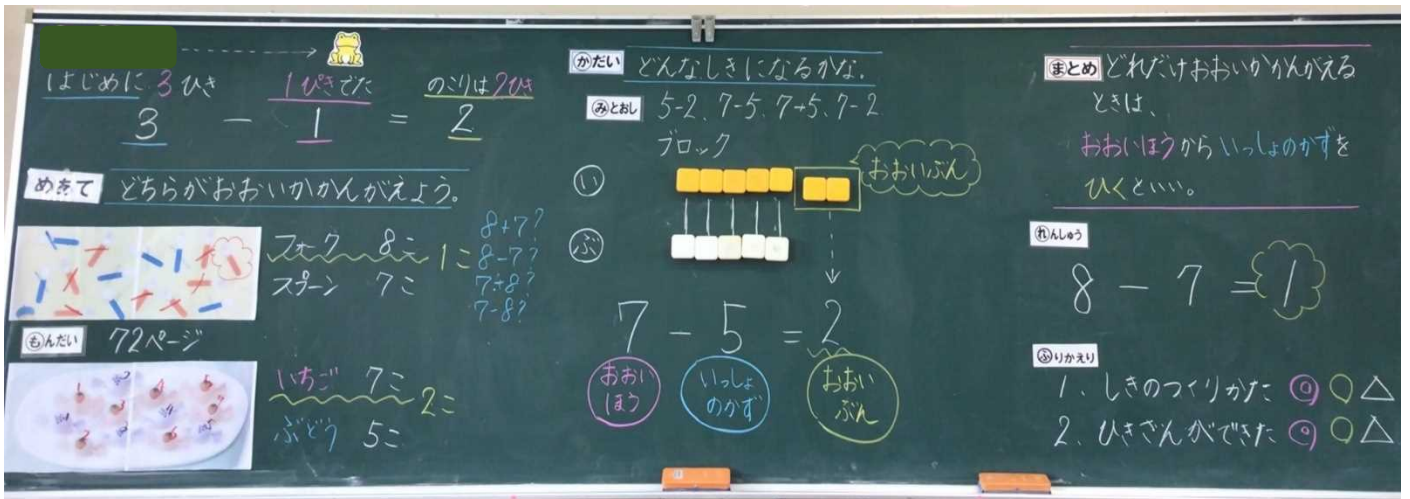 はじめに 3 ひき 1ぴきでた のこりは2ひき
3 － 1 ＝ 2
めあて どちらがおおいかかんがえよう。
フォーク 8こ
スプーン 7こ
1こ
8+7?
8-7?
7+8?
7-8?
もんだい 72ページ
いちご 7こ
ぶどう 5こ
2こ
かだい どんなしきになるかな。
みとおし 5-2、7-5、7+5、7-2
ブロック
い
おおいぶん
ぶ
7 － 5 ＝ 2
おおいほう
いっしょのかず
おおいぶん
まとめ どれだけおおいかかんがえる
ときは、
おおいほうからいっしょのかずを
ひくといい。
れんしゅう
8 － 7 ＝ 1
ふりかえり
1. しきのつくりかた ◎ ○ △
2. ひきざんができた ◎ ○ △